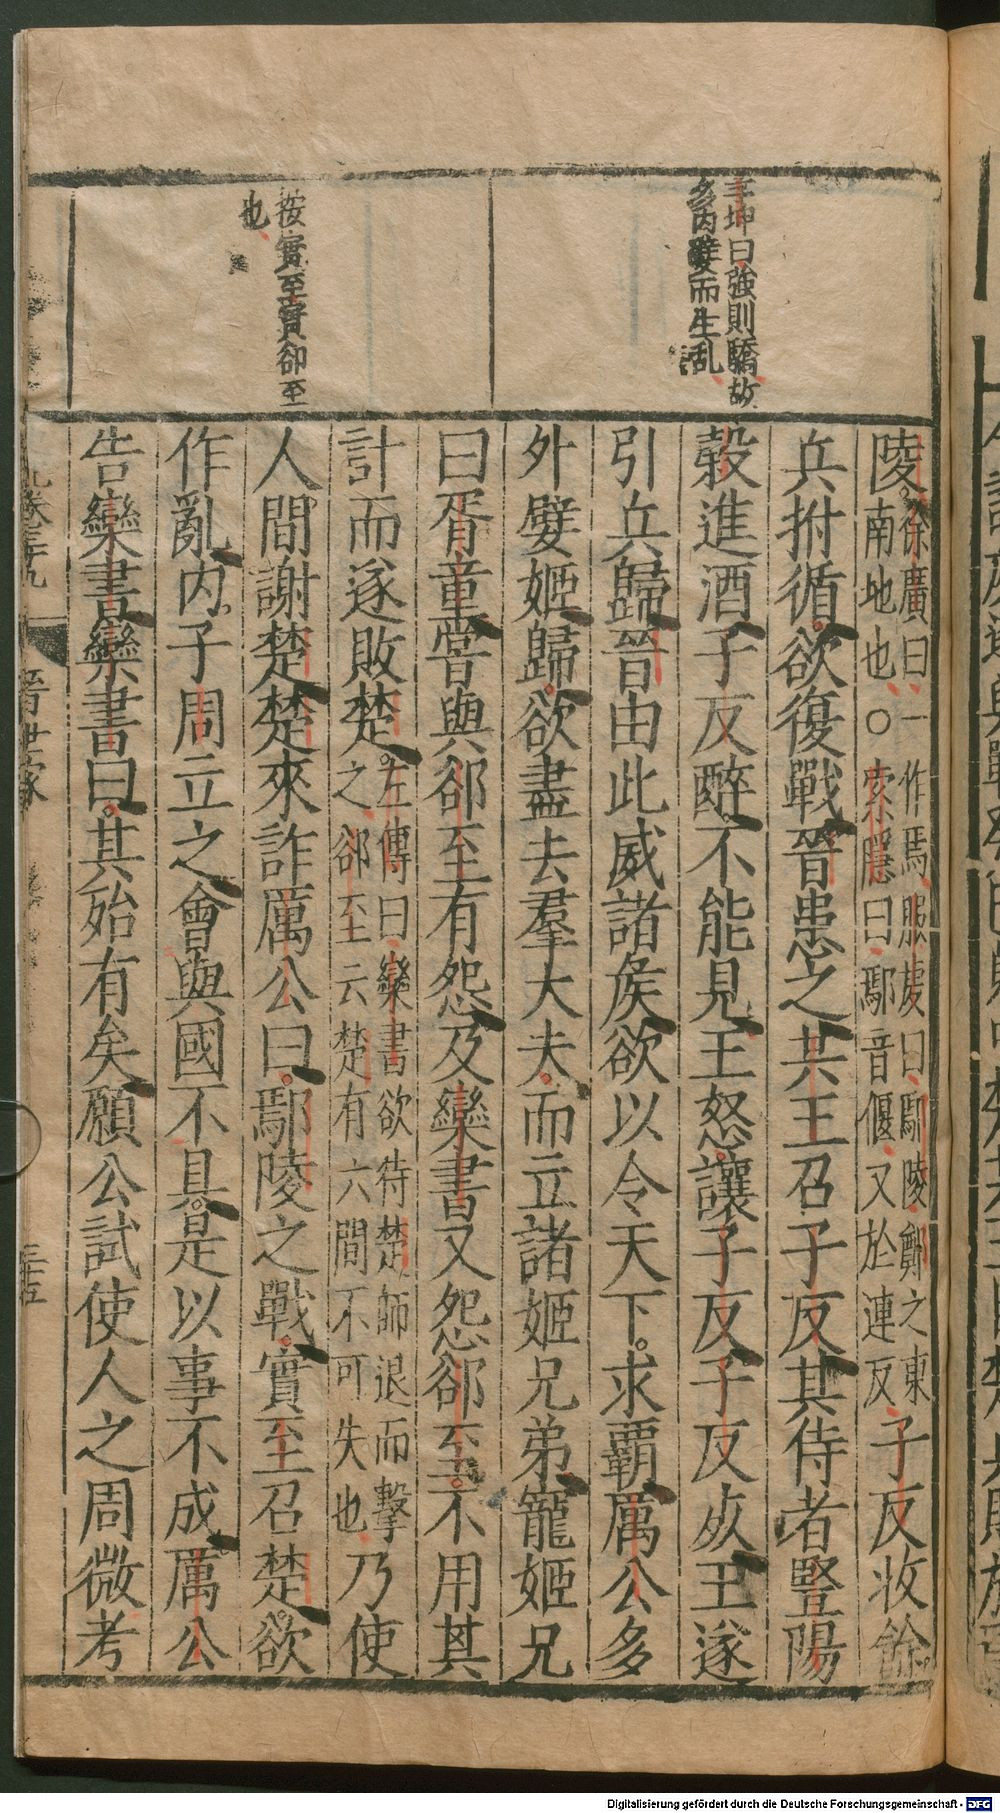 李坤曰強則驕故
多内嬖而生乱
按實至實卻至
也
陵徐廣曰一作焉服虔曰鄢陵鄭之東
南地也○索隱曰鄢音偃又於連反子反收餘
兵拊循欲復戰晉患之共王召子反其侍者豎陽
穀進酒子反醉不能見王怒讓子反子反死王遂
引兵歸晉由此威諸侯欲以令天下求覇厲公多
外嬖姬歸欲盡去羣大夫而立諸姬兄弟寵姬兄
曰胥童嘗與郤至有怨及欒書又怨郤至不用其
計而遂敗楚左傳曰欒書欲待楚師退而擊
之郤至云楚有六間不可失也乃使
人間謝楚楚來詐厲公曰鄢陵之戰實至召楚欲
作亂内子周立之會與國不具是以事不成厲公
告欒書欒書曰其殆有矣願公試使人之周微考
卷三十九
晉世家
三十五
Digitalisierung gefördert durch die Deutsche Forschungsgemeinschaft - DFG